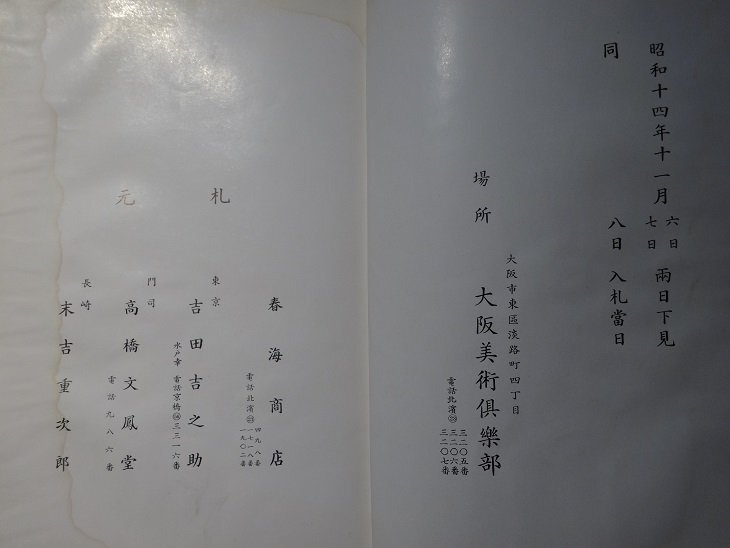 昭和十四年十一月 六日 七日 兩日下見
同 八日 入札當日
場所
大阪市東區淡路町四丁目
大阪美術俱樂部
電話北濱
三二〇五番
三二〇六番
三二〇七番
札元
春海商店
電話北濱
四九八番
一七一八番
一九〇二番
東京
吉田吉之助
水戸幸 電話京橋 三三一六番
門司
高橋文鳳堂
電話九八六番
長崎
末吉重次郎